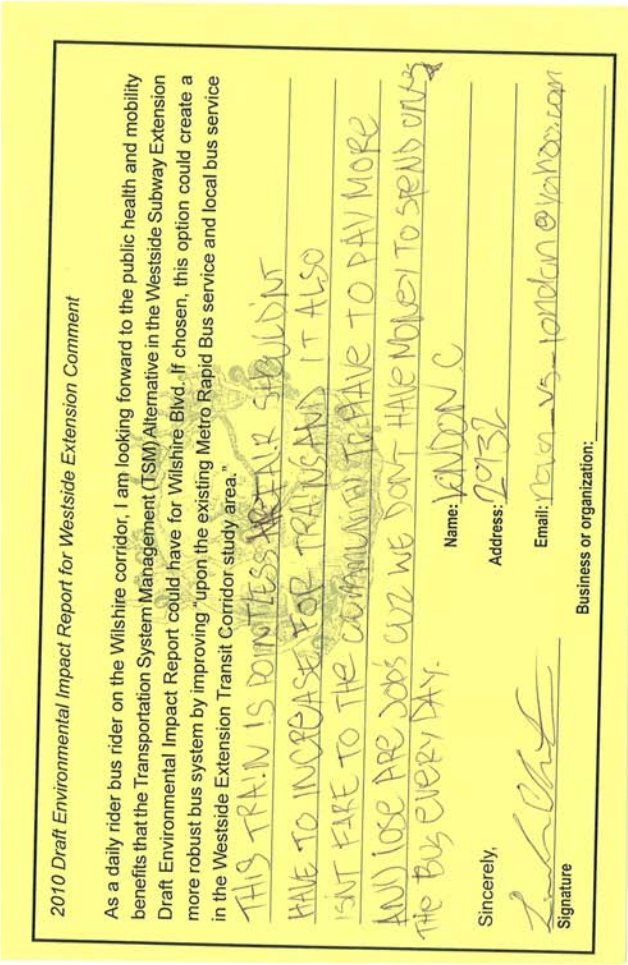 2010 Draft Environmental Impact Report for Westside Extension Comment
As a daily rider bus rider on the Wilshire corridor, I am looking forward to the public health and mobility
benefits that the Transportation System Management (TSM) Alternative in the Westside Subway Extension
Draft Environmental Impact Report could have for Wilshire Blvd. If chosen, this option could create a
more robust bus system by improving "upon the existing Metro Rapid Bus service and local bus service
in the Westside Extension Transit Corridor study area."
THIS TRAIN IS POINTLESS FAIR SHOULDINT
HAVE TO INCREASE FOR TRAINS AND IT ALSO
ISNT FARE TO THE COMMUNITY TO HAVE TO PAY MORE
AND lOSE ARE JOBS CUZ WE DONT HAVE MONEY TO SPEND ON
THE BUS EVERY DAY.
Sincerely,
Name: LANDON C
Address: 2932
Email:
Signature
Business or organization: